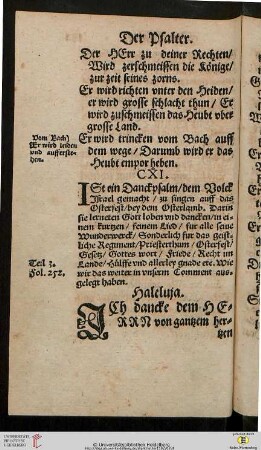 Der Psalter.
Der HErr zu deiner Rechten/
Wird zerschmeissen die Könige/
zur zeit seines zorns.
Er wird richten vnter den Heiden/
er wird grosse schlacht thun/ Er
wird zuschmeissen das Heubt vber
grosse Land.
Vom Bach/
Er wird leiden
vnd aufferste-
hen.
Er wird trincken vom Bach auff
dem wege/ Darumb wird er das
Heubt empor heben.
CXI.
ISt ein Danckpsalm/ dem Volck
Israel gemacht/ zu singen auff das
Osterfest/ bey dem Osterlamb. Darin
sie lerneten Gott loben vnd dancken/ in ei-
nem kurtzen/ feinem Lied/ für alle seine
Wunderwerck/ Sonderlich für das geist-
liche Regiment/ Priesterthum/ Osterfest/
Gesetz/ Gottes wort/ Friede/ Recht im
Lande/ Hülffe vnd allerley gnade etc. Wie
wir das weiter in vnserm Comment aus-
gelegt haben.
Teil 3.
Fol. 252.
Haleluja.
ICh dancke dem HE-
RRN von gantzem her-
tzen
UNIVERSITÄTS-
BIBLIOTHEK
HEIDELBERG
© Universitätsbibliothek Heidelberg